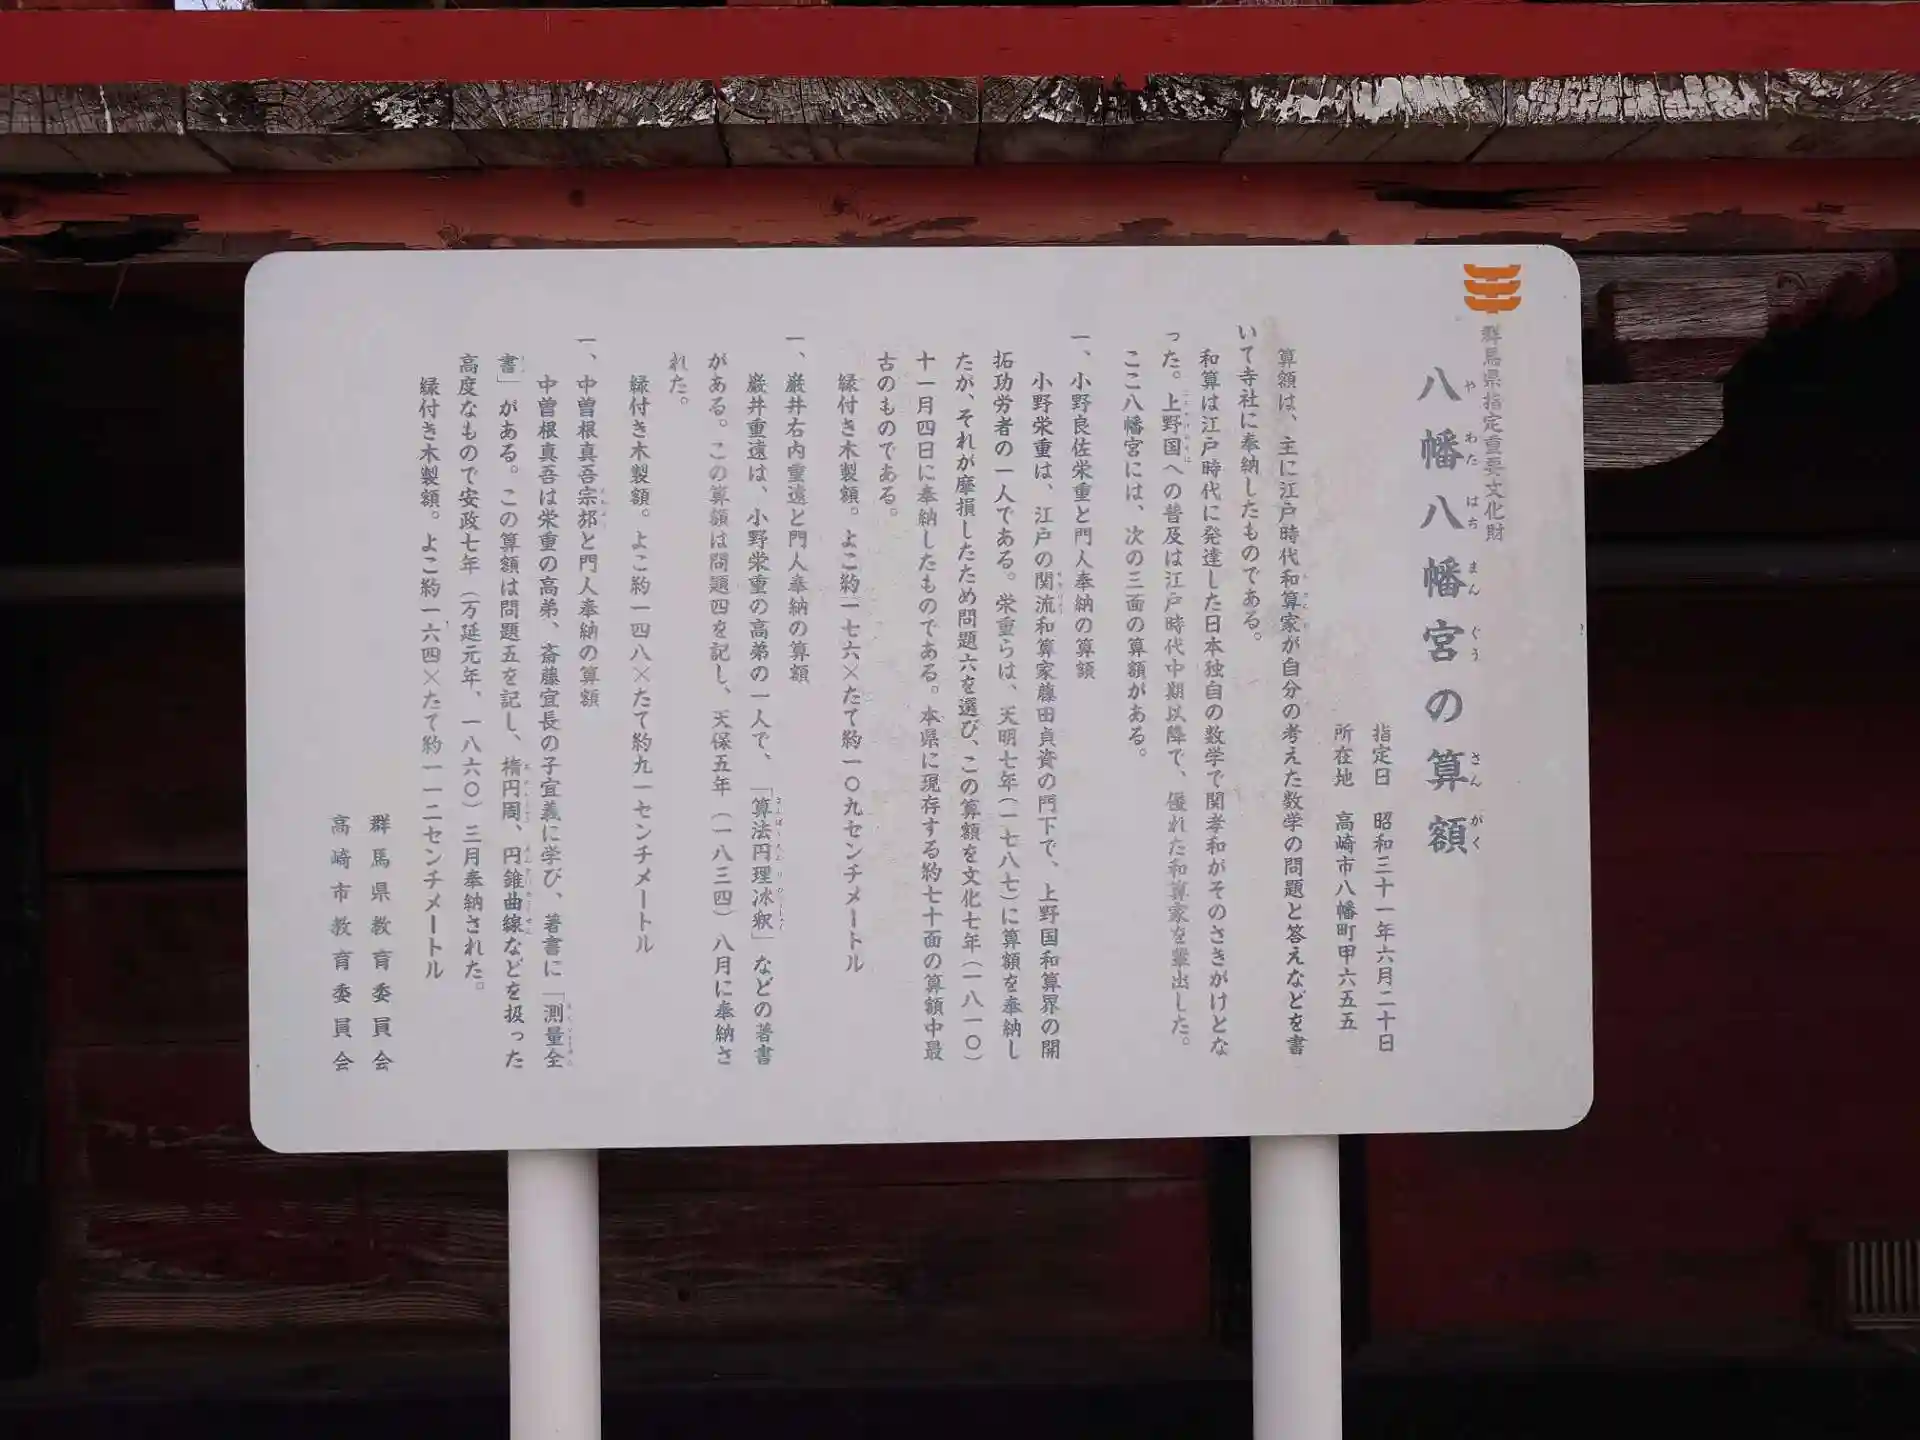 群馬県指定重要文化財
八幡八幡宮の算額
やわたはちまんぐうさんがく
指定日 昭和三十一年六月二十日
所在地 高崎市八幡町甲六五五
算額は、主に江戸時代和算家が自分の考えた数学の問題と答えなどを書
いて寺社に奉納したものである。
和算は江戸時代に発達した日本独自の数学で関孝和がそのさきがけとな
った。上野国への普及は江戸時代中期以降で、優れた和算家を輩出した。
ここ八幡宮には、次の三面の算額がある。
一、小野良佐栄重と門人奉納の算額
小野栄重は、江戸の関流和算家藤田貞資の門下で、上野国和算界の開
拓功労者の一人である。栄重らは、天明七年(一七八七)に算額を奉納し
たが、それが摩損したため問題六を選び、この算額を文化七年(一八一〇)
十一月四日に奉納したものである。本県に現存する約七十面の算額中最
古のものである。
縁付き木製額。よこ約一七六×たて約一〇九センチメートル
一、巌井右内重遠と門人奉納の算額
巌井重遠は、小野栄重の高弟の一人で、「算法円理冰釈」などの著書
がある。この算額は問題四を記し、天保五年(一八三四)八月に奉納さ
れた。
縁付き木製額。よこ約一四八×たて約九一センチメートル
一、中曽根真吾宗邡と門人奉納の算額
中曽根真吾は栄重の高弟、斎藤宜長の子宜義に学び、著書に「測量全
書」がある。この算額は問題五を記し、楕円周、円錐曲線などを扱った
高度なもので安政七年(万延元年、一八六〇)三月奉納された。
縁付き木製額。よこ約一六四×たて約一一二センチメートル
群馬県教育委員会
高崎市教育委員会